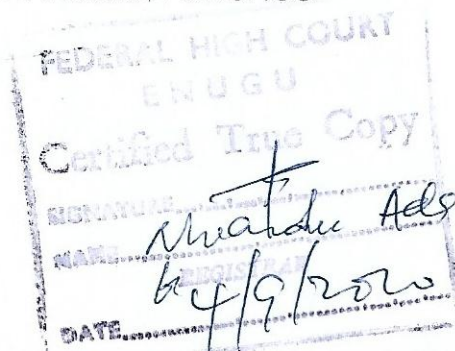 FEDERAL HIGH COURT
ENUGU
Certified True Copy
SIGNATURE
NAME
REGISTRAR
4/9/2020
DATE